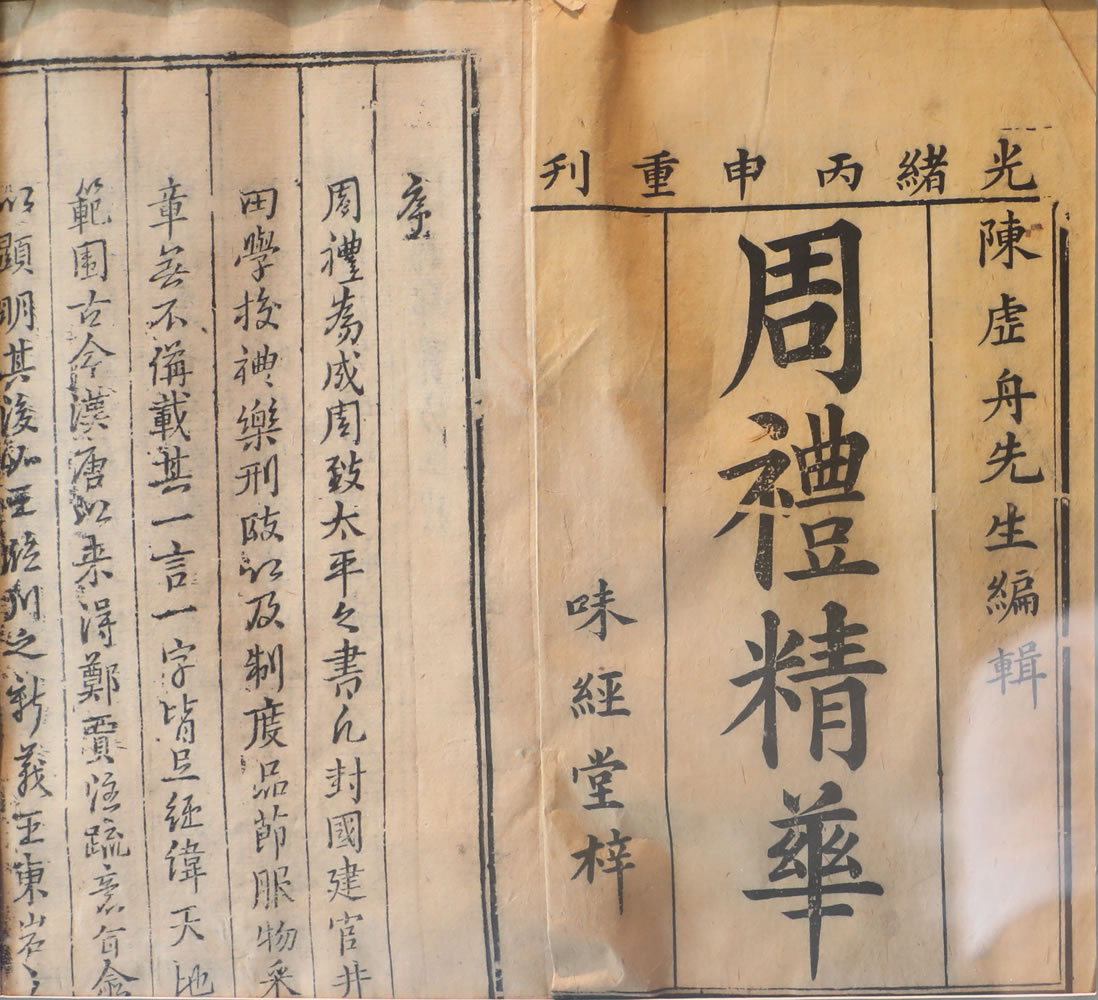 光緒丙申重刊
陳虛舟先生編輯
周禮精華
味經堂梓
序
周禮為成周致太平之書凡封國建官井
田學校禮樂刑政以及制度品節服物采
章無不備載其一言一字皆足經緯天地
範圍古今漢唐以來得鄭賈注疏意旨愈
以顯明其後如王臨川之新義王東岩之